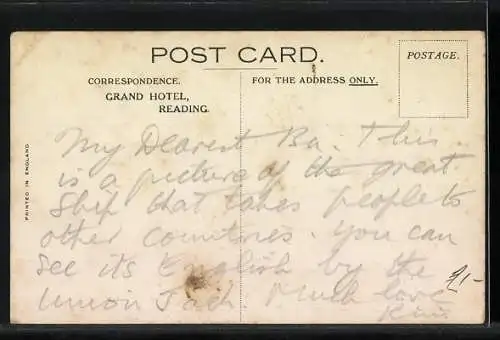 POST CARD.
POSTAGE.
CORRESPONDENCE.
FOR THE ADDRESS ONLY.
GRAND HOTEL,
READING.
PRINTED IN ENGLAND
My Dearest Ba. This
is a picture of the great
Ship that takes people to
other Countries. You can
See its English by the
Union Jack. Much love